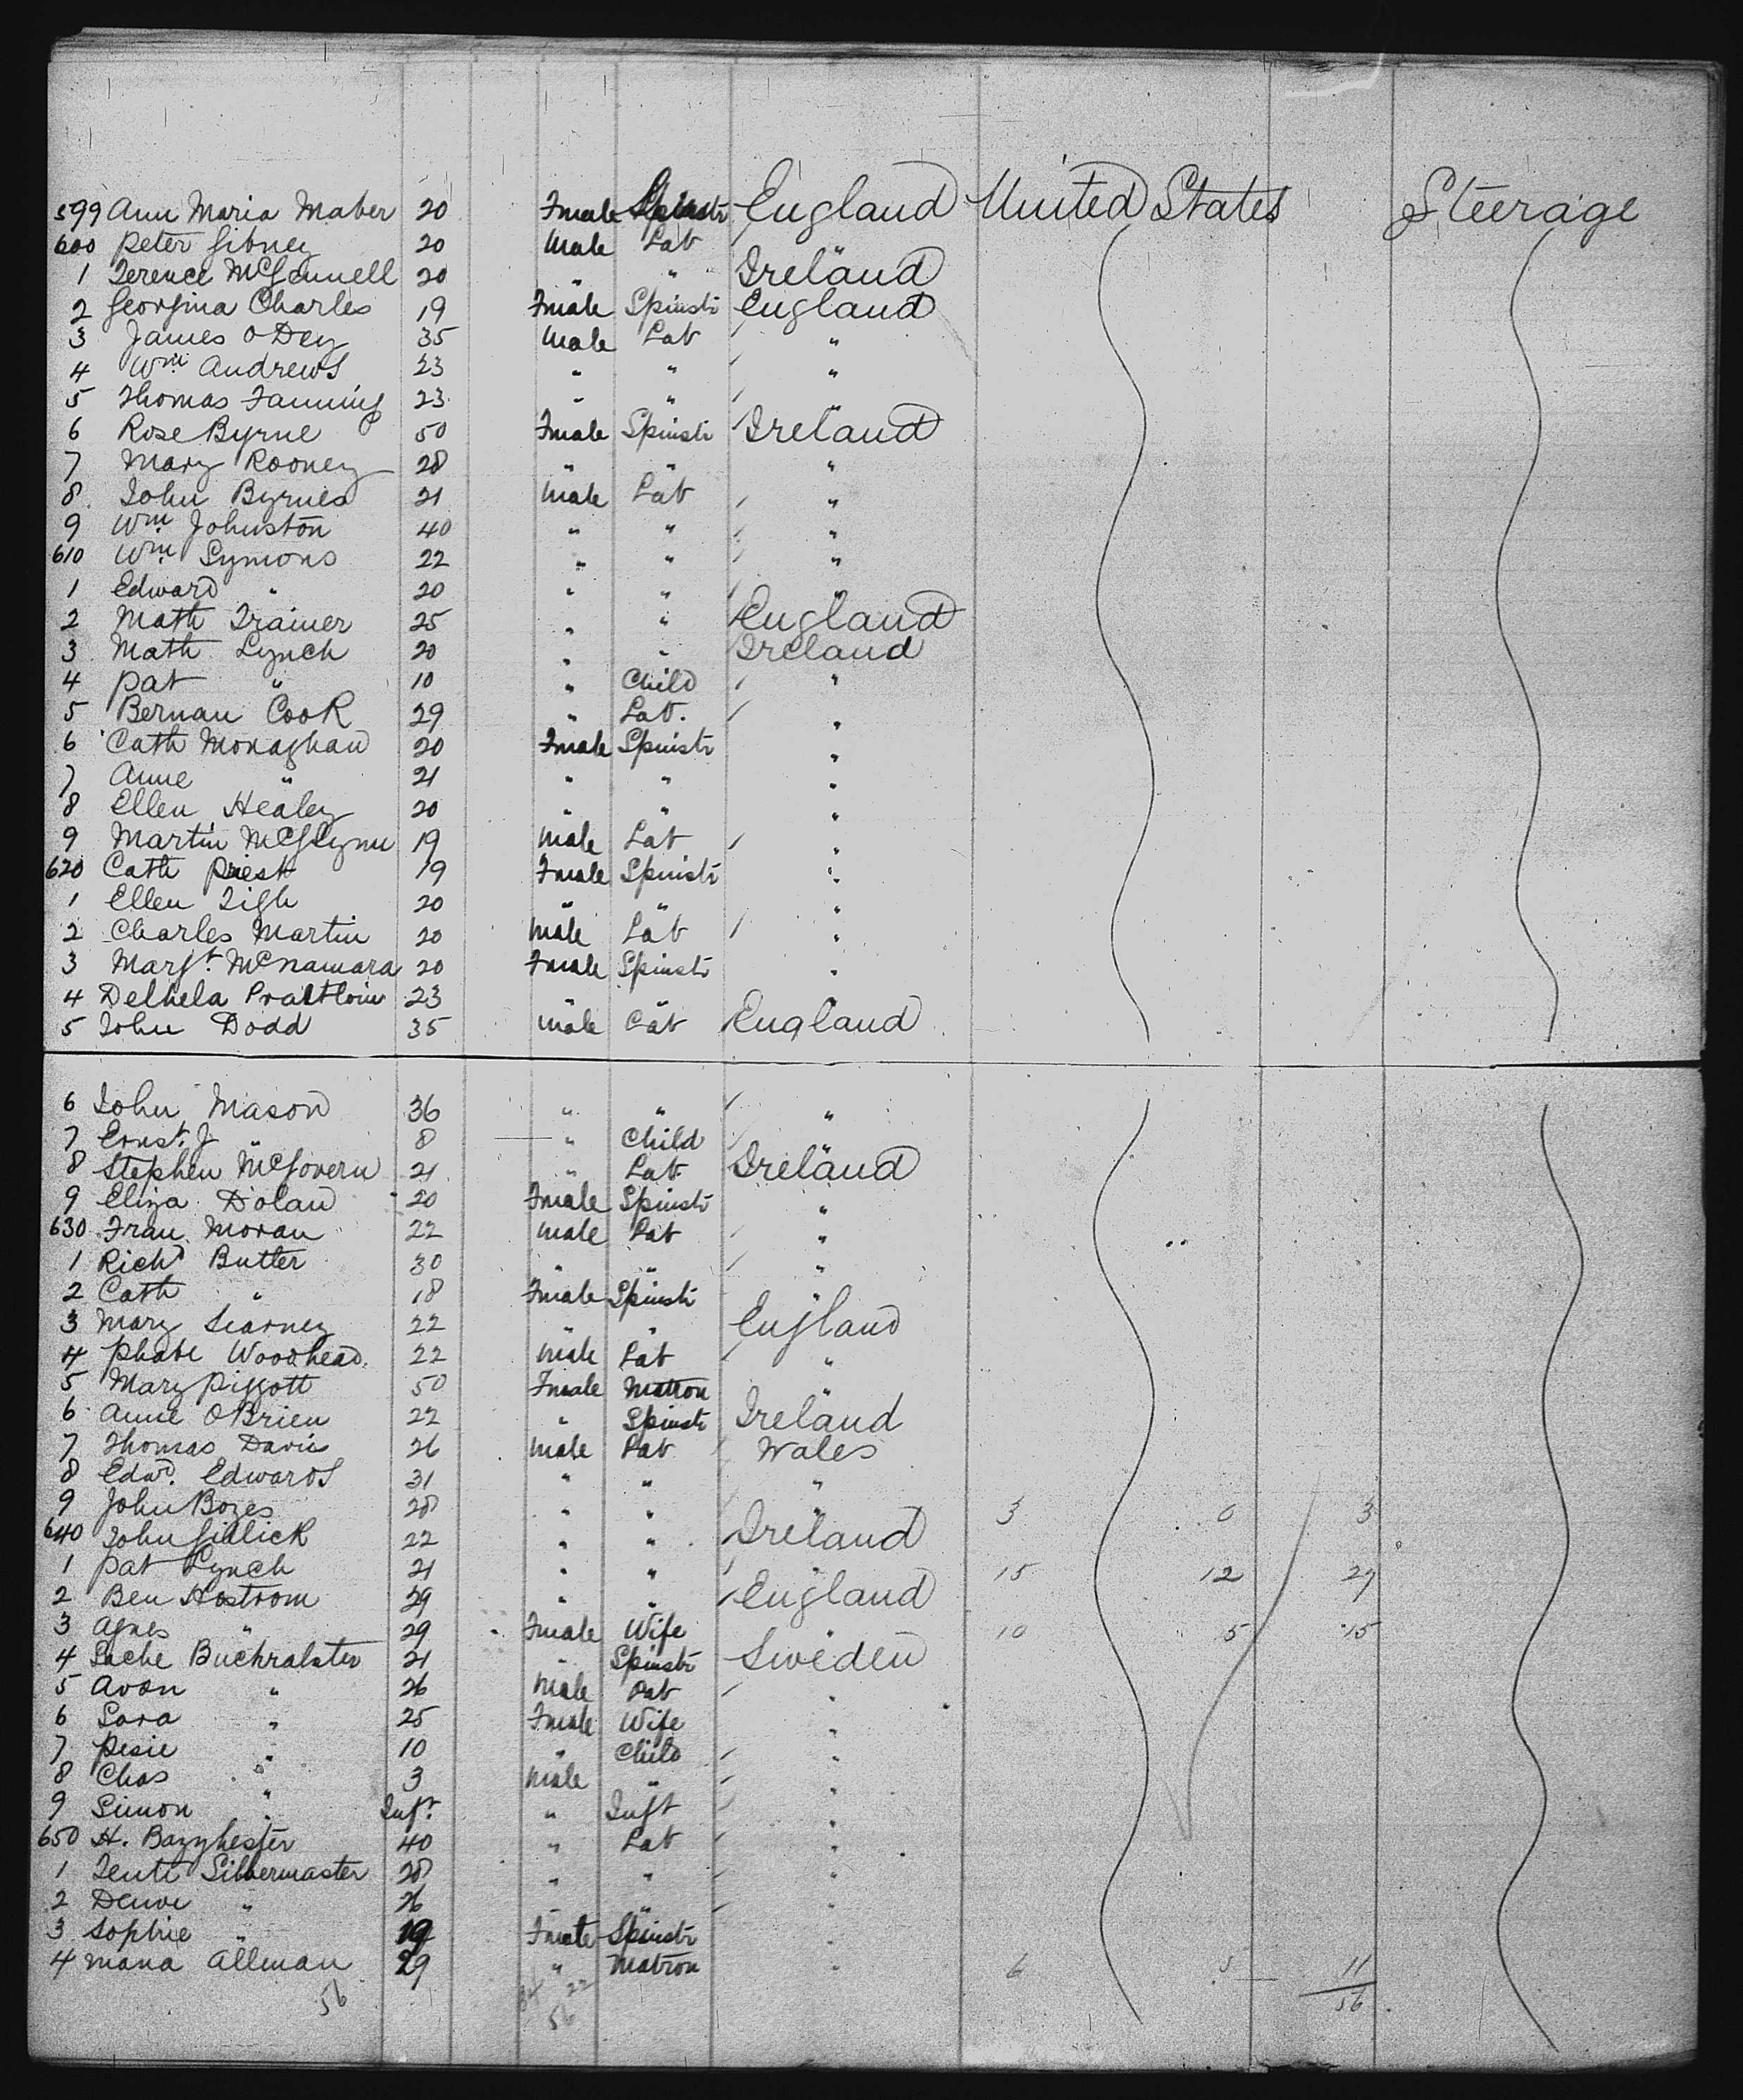 599 Ann Maria Maber 20 Fmale Spinstr England United States Steerage
600 Peter Gibney 20 Male Lab "
1 Terence McGennell 20 " " Ireland
2 Georgina Charles 19 Fmale Spinstr England
3 James O Dey 35 Male Lab "
4 Wm Andrews 23 " " "
5 Thomas Fanning 23 " " "
6 Rose Byrne 50 Fmale Spinstr Ireland
7 Mary Rooney 28 " " "
8 John Byrnes 21 Male Lab "
9 Wm Johnston 40 " " "
610 Wm Symons 22 " " "
1 Edward " 20 " " "
2 Math Trainer 25 " " England
3 Math Lynch 20 " " Ireland
4 Pat " 10 " Child "
5 Bernan Cook 29 " Lab. "
6 Cath Monaghan 20 Fmale Spinstr "
7 Anne " 21 " " "
8 Ellen Healey 20 " " "
9 Martin McGlynn 19 Male Lab "
620 Cath Priest 19 Fmale Spinstr "
1 Ellen Tigh 20 " " "
2 Charles Martin 20 Male Lab "
3 Margt. McNamara 20 Fmale Spinstr "
4 Delhela 23 " " "
5 John Dodd 35 Male Lab England
6 John Mason 36 " " "
7 Ernst. J " 8 " Child
8 Stephen McGovern 21 " Lab Ireland
9 Eliza Dolan 20 Fmale Spinstr "
630 Fran Moran 22 Male Lab "
1 Richd Butler 30 " " "
2 Cath " 18 Fmale Spinstr "
3 Mary Searney 22 " " England
4 Phabe Woodhead 22 Male Lab "
5 Mary Piggott 50 Fmale Matron "
6 Anne O Brien 22 " Spinstr Ireland
7 Thomas Davis 26 Male Lab Wales
8 Edwd. Edwards 31 " " "
9 John Bozes 28 " " " 3 0 3
640 John Gillick 22 " " Ireland
1 Pat Lynch 21 " " " 15 12 27
2 Ben Hostrom 29 " " England
3 Agnes " 29 Fmale Wife " 10 5 15
4 Sache Buchralster 21 " Spinstr Sweden
5 Avon " 26 Male Lab "
6 Sara " 25 Fmale Wife "
7 Pesie " 10 " Child "
8 Chas " 3 Male " "
9 Simon " Inft. " Inft "
650 H. Bazyhester 40 " Lab "
1 Tentt Silbermaster 28 " " "
2 Denve " 26 " " "
3 Sophie " 19 Fmale Spinstr "
4 Mana Allman 29 " Matron " 6 5 11
56 34 22 56
56